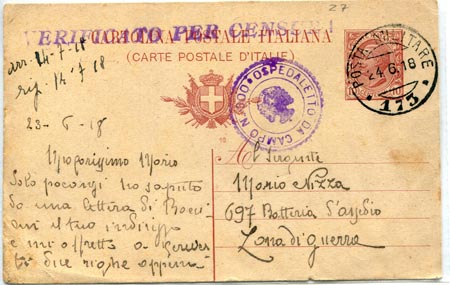 27
VERIFICATO PER CENSURA
CARTOLINA POSTALE ITALIANA
(CARTE POSTALE D'ITALIE)
arr. 14-7-18
risp. 14-7-18
POSTA MILITARE
24.6.18
173
OSPEDALETTO DA CAMPO N.
23-6-18
Mio carissimo Mario
Solo poc'anzi ho saputo
da una lettera di
il tuo indirizzo
e mi affretto a scriver
ti due righe
Al Sergente
Mario Nizza
697 Batteria d'assedio
Zona di guerra